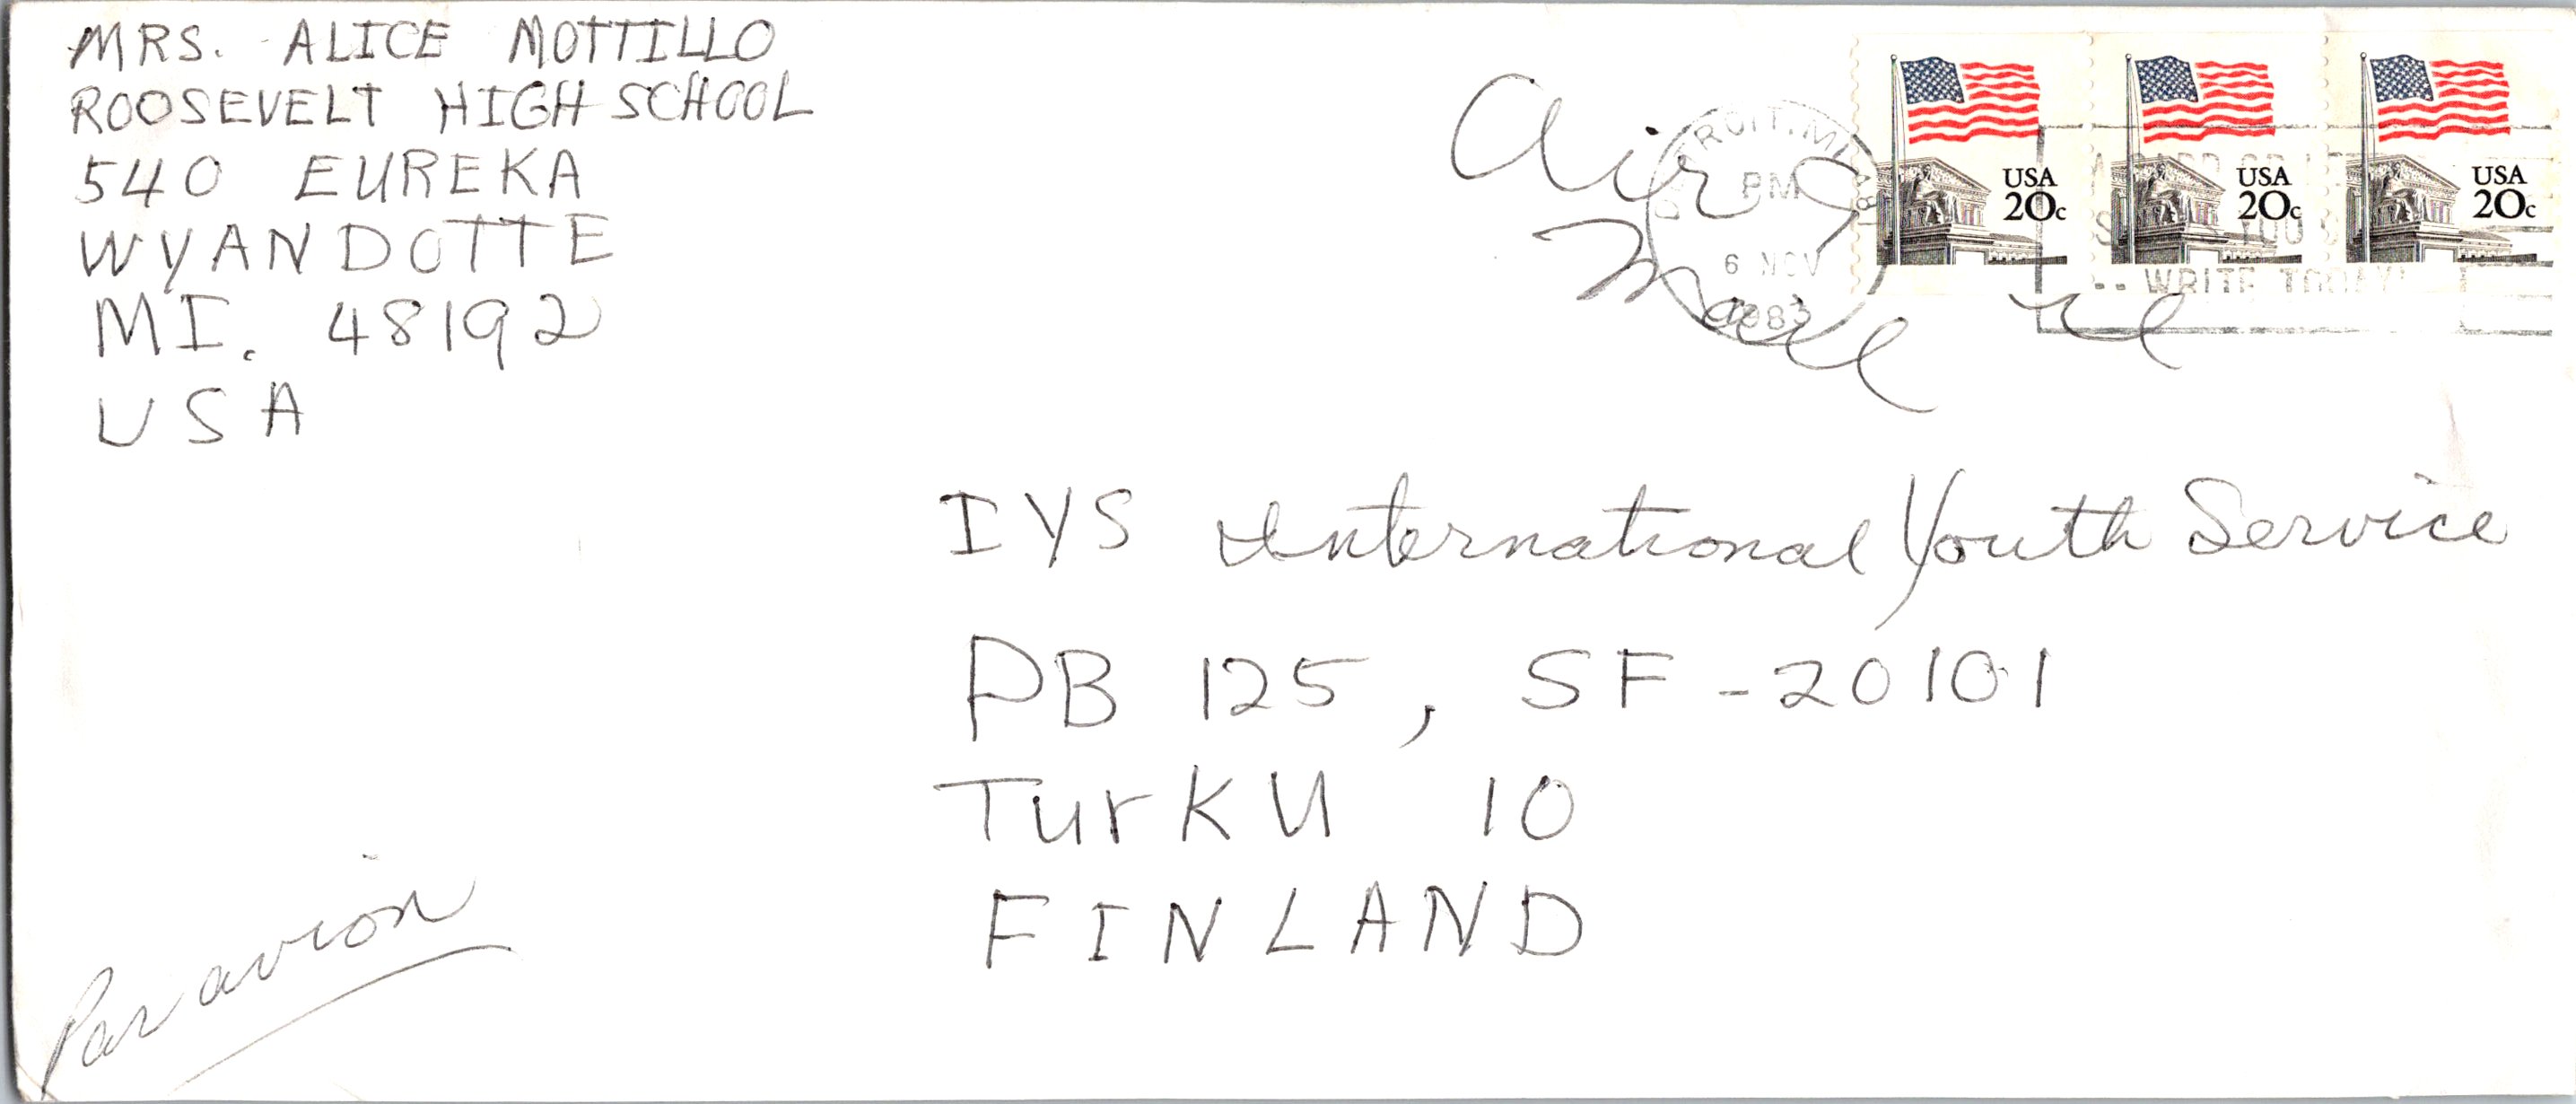 MRS. ALICE MOTTILLO
ROOSEVELT HIGH SCHOOL
540 EUREKA
WYANDOTTE
MI. 48192
USA
Air
Mail
DETROIT, MI 481
PM
6 NOV
1983
USA
20c
USA
20c
USA
20c
A CARD OR
YOU
-- WRITE TODAY!
IYS International Youth Service
PB 125, SF-20101
TurKU 10
FINLAND
Par avion